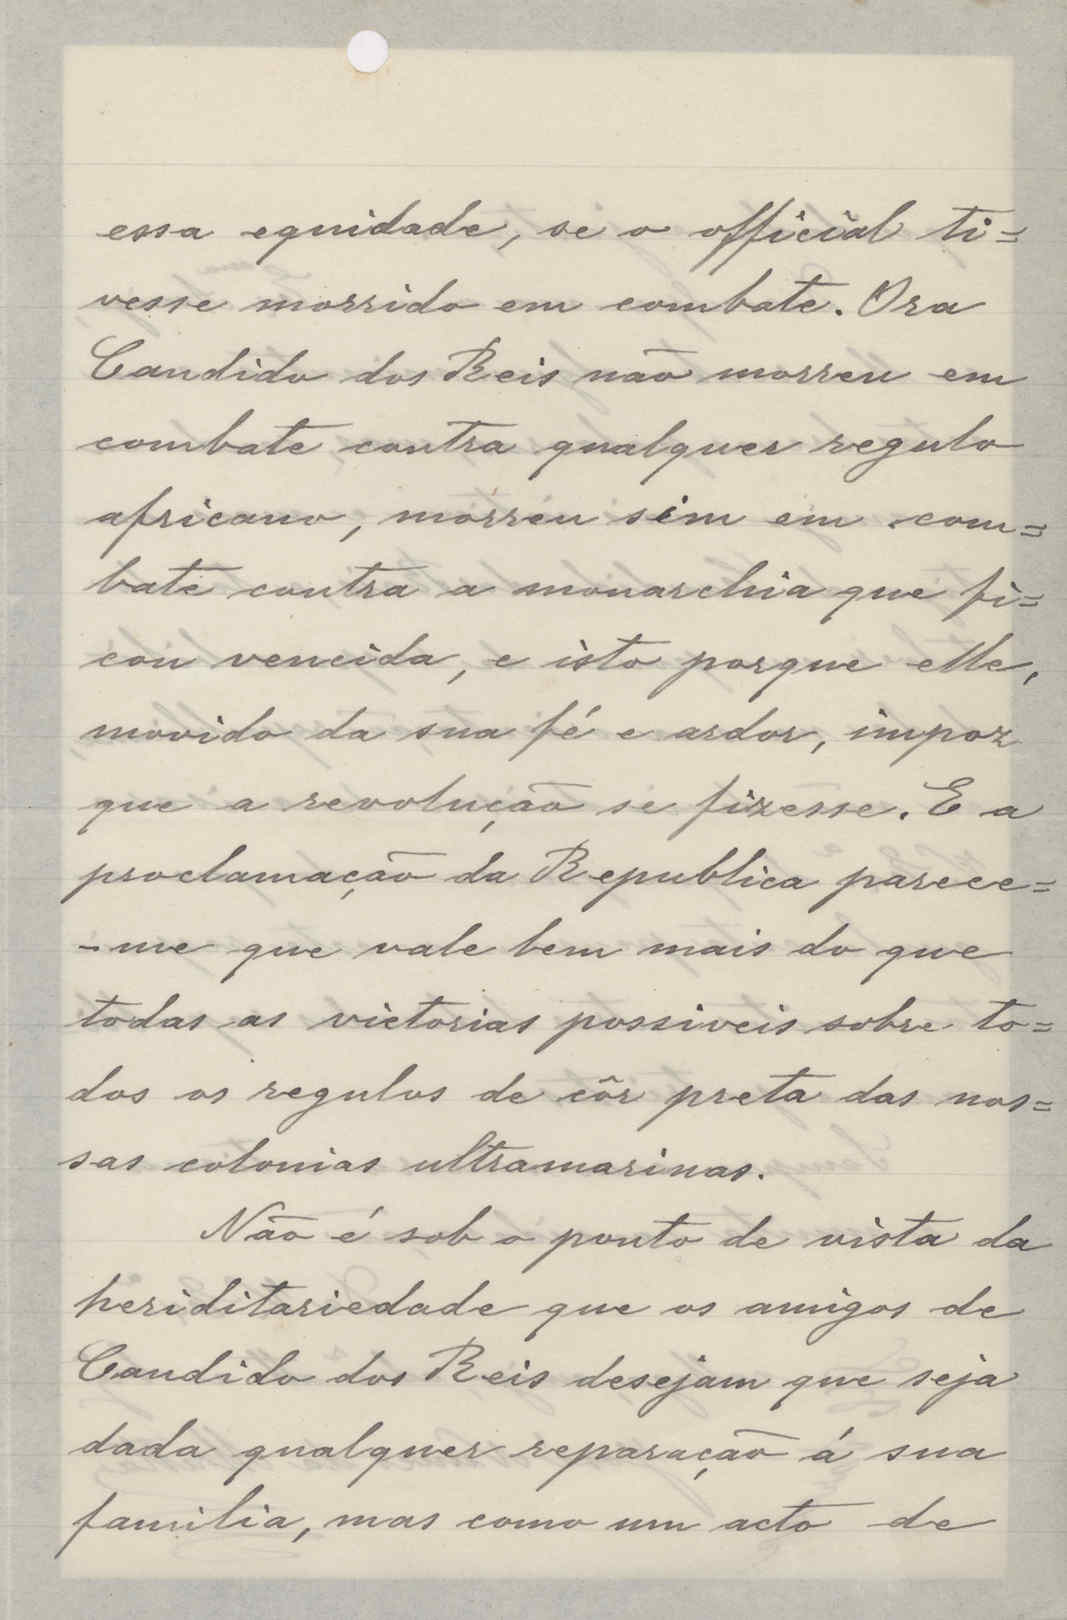 essa equidade, se o official ti=
vesse morrido em combate. Ora
Candido dos Reis não morreu em
combate contra qualquer regulo
africano, morreu sim em com=
bate contra a monarchia que fi=
cou vencida, e isto porque elle,
movido da sua fé e ardor, impoz
que a revolução se fizesse. E a
proclamação da Republica parece=
-me que vale bem mais do que
todas as victorias possiveis sobre to=
dos os regulos de côr preta das nos=
sas colonias ultramarinas.
Não é sob o ponto de vista da
heriditariedade que os amigos de
Candido dos Reis desejam que seja
dada qualquer reparação á sua
familia, mas como um acto de